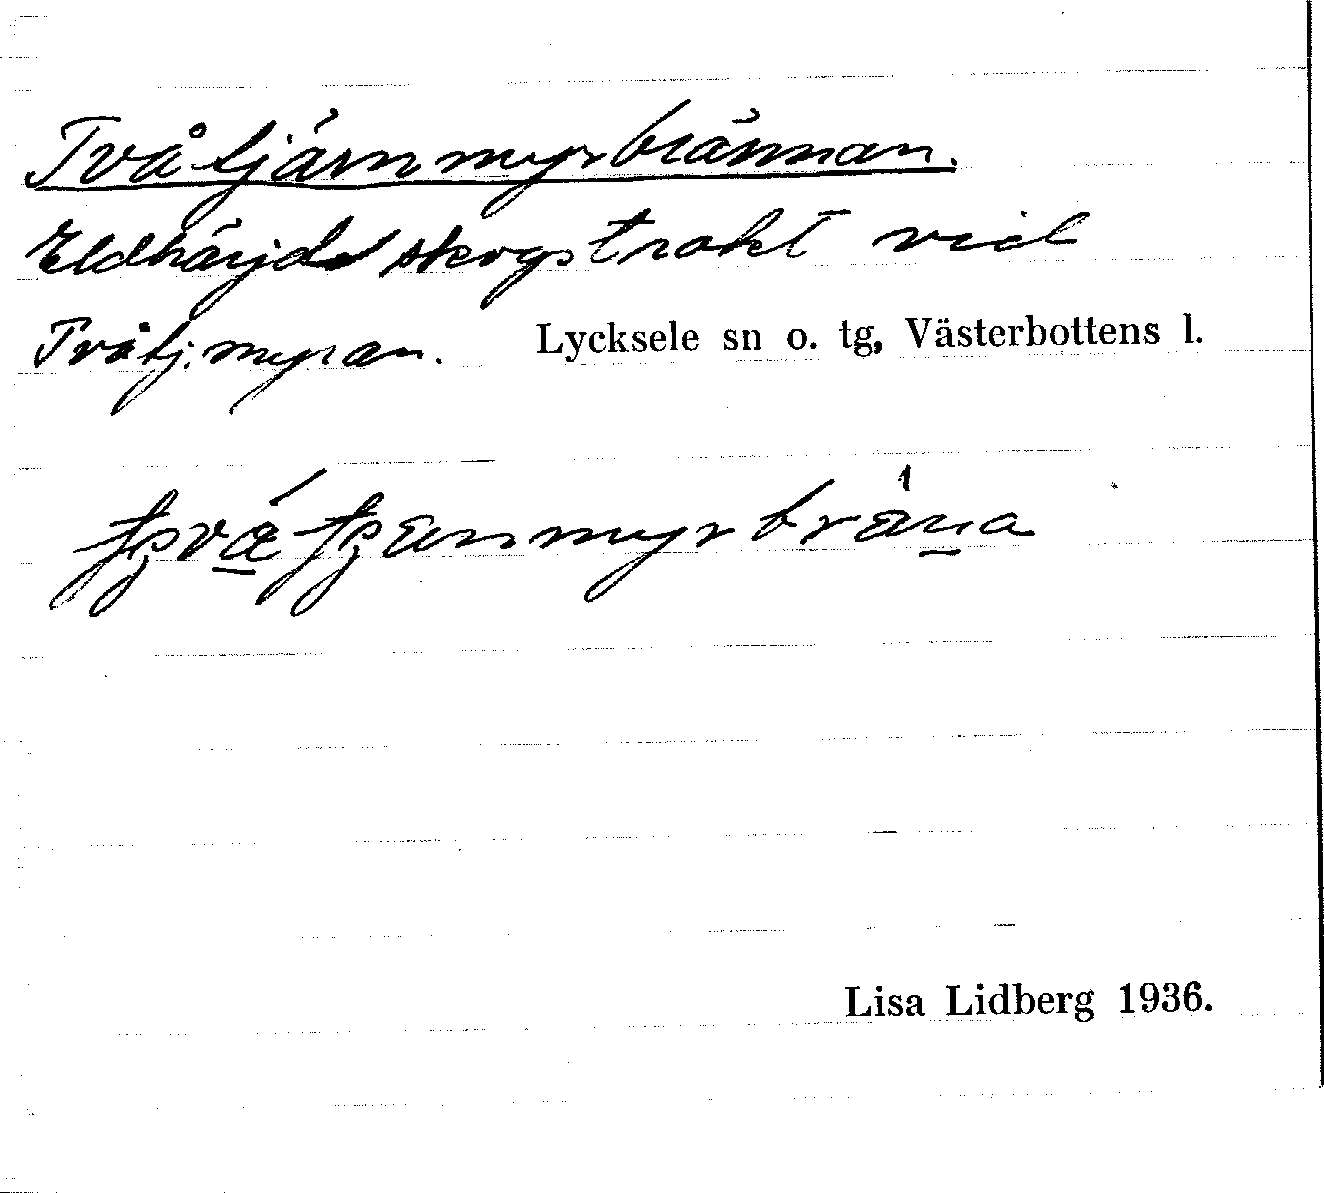 Tvåtjärnmyrbrännan.
Eldhärjad skogstrakt vid
Tvåtj. myran. Lycksele sn o. tg, Västerbottens l.
Lisa Lidberg 1936.